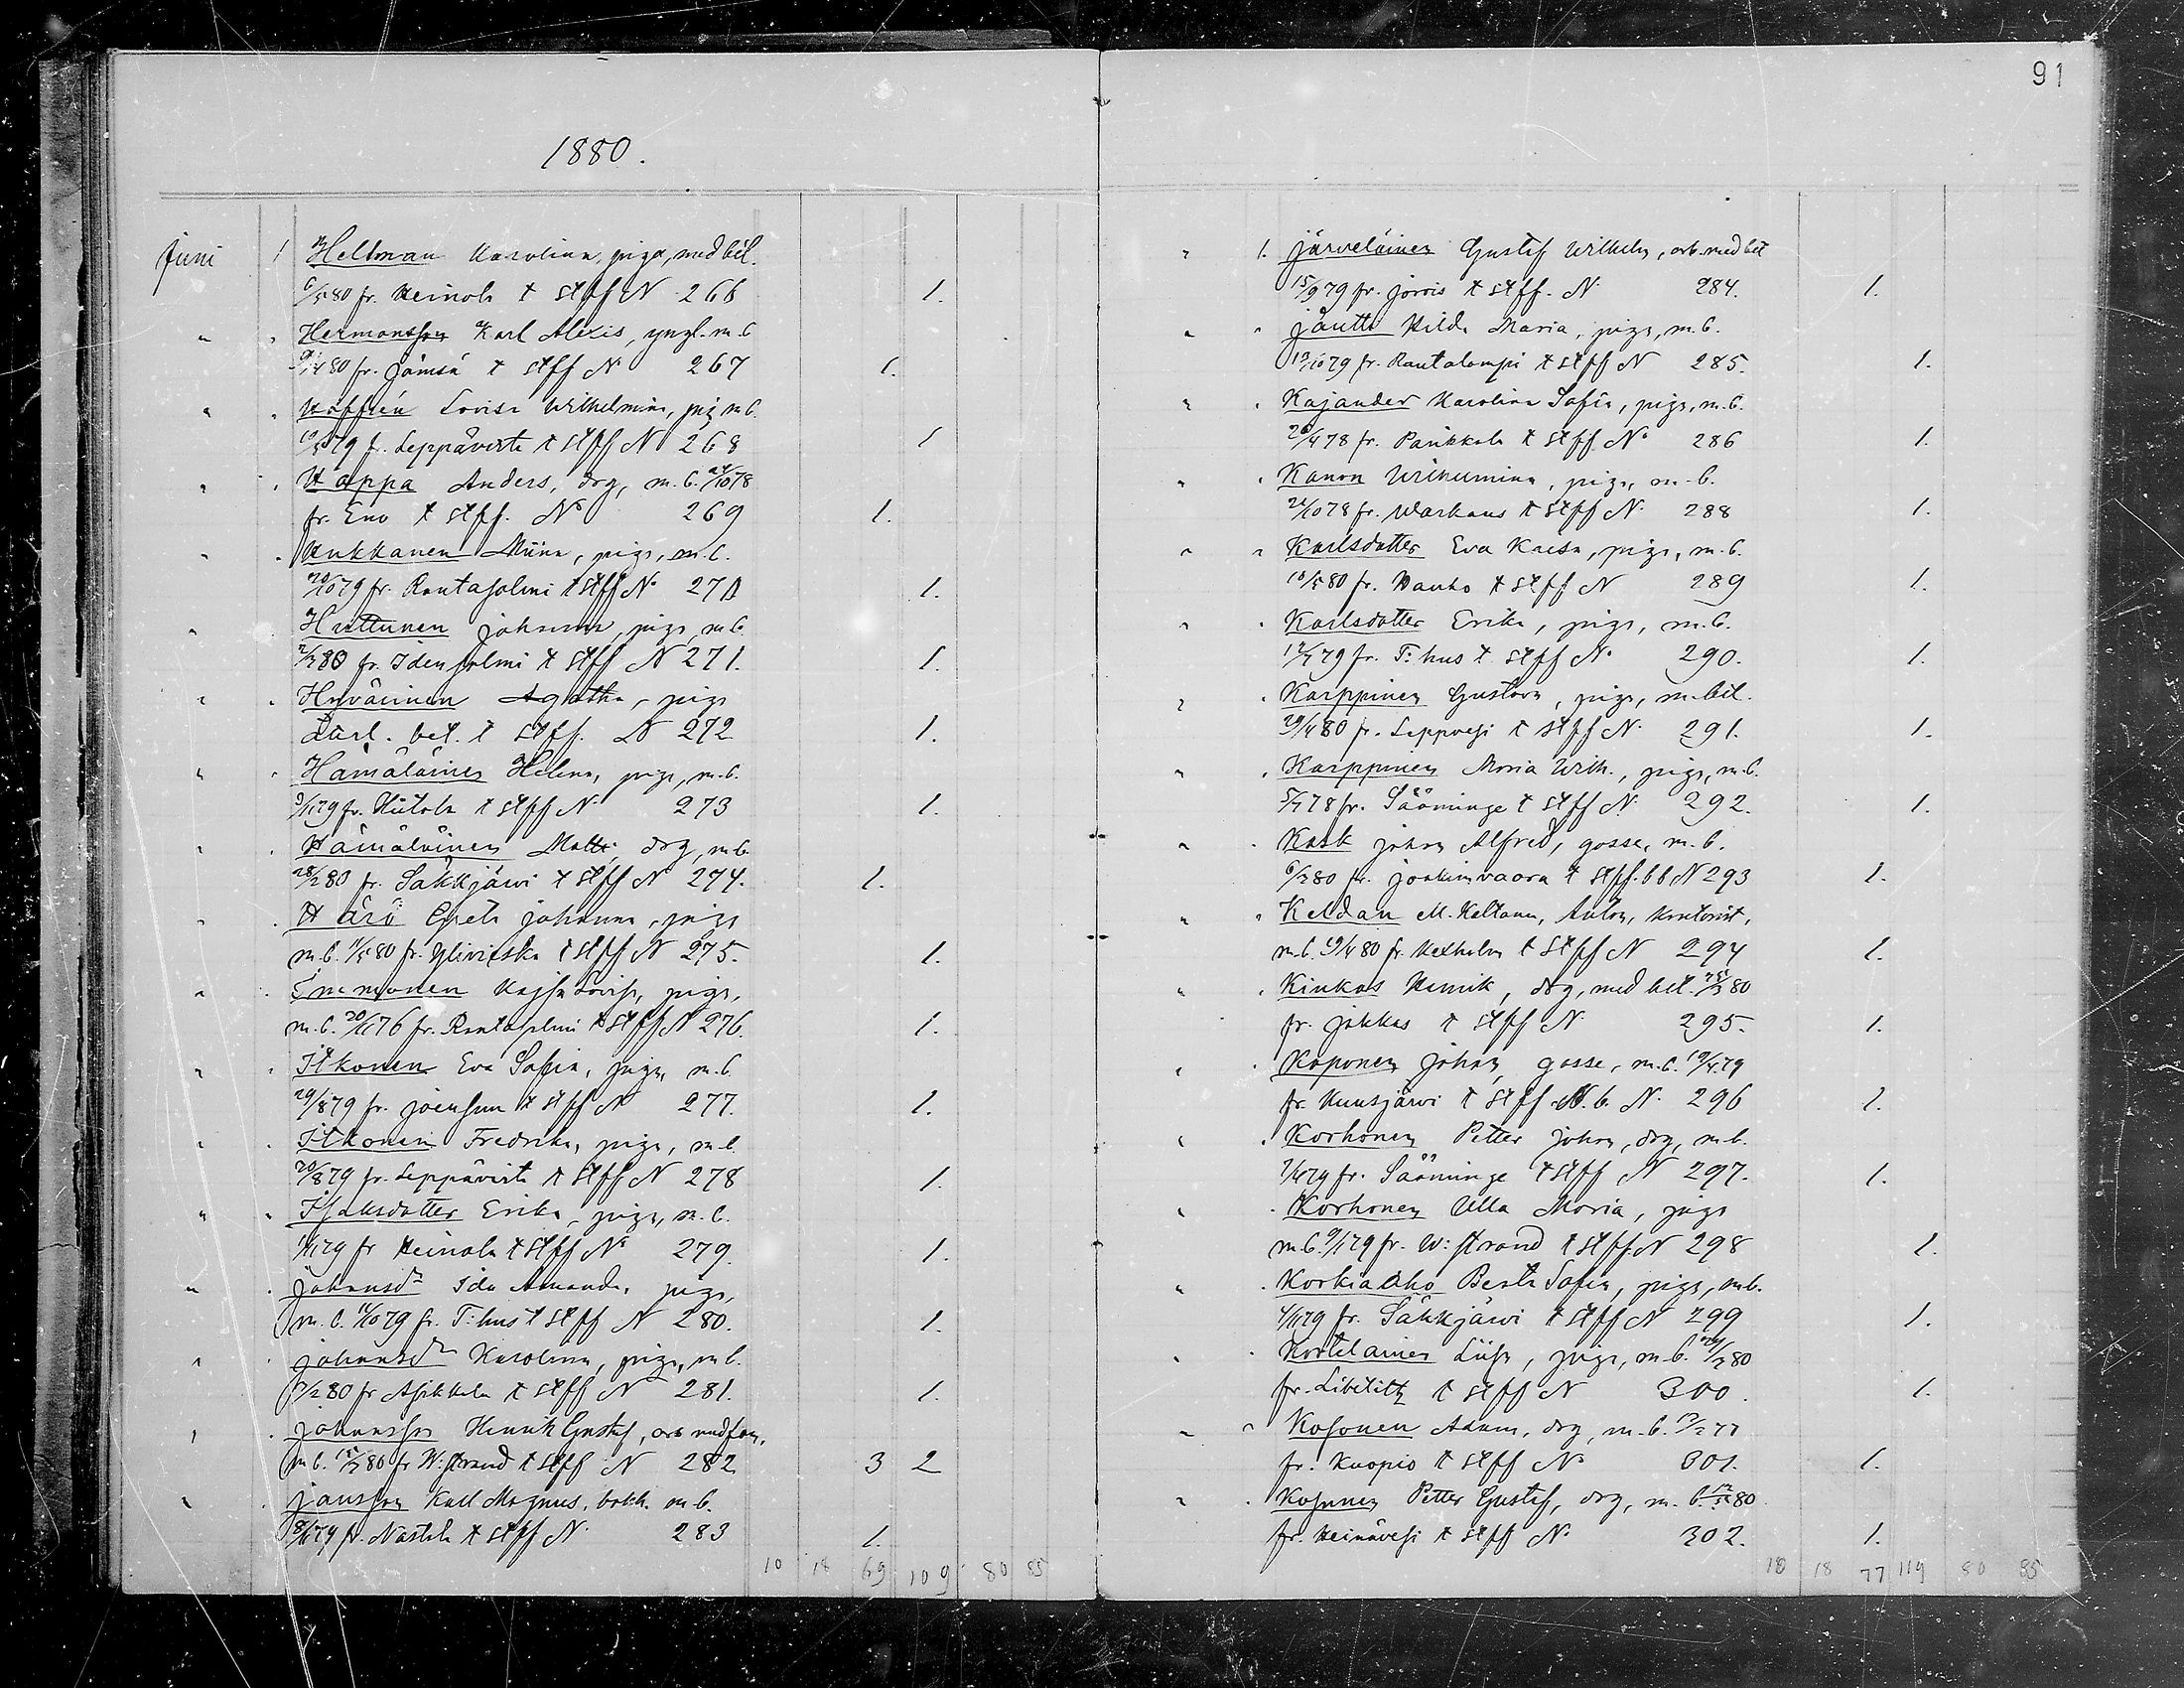 91
1880.
Juni 1 Hellman Karolina, piga, med bet.
6/5 80 fr. Heinola t stff N 266 1.
" " Hermansson Karl Alexis, yngl. m. b
4 80 fr. Jämsä t stff N 267 1.
" " Hoffrén Lovisa Wilhelmina, pig m b.
10/5 79 f. Leppävirta t stff N 268 1
" " Hoppa Anders, drg, m. b. 24/10 78
fr. Eno t stff. No 269 1.
" " Hukkanen Miina, piga, m. b.
20/10 79 fr. Rantasalmi t stff No 270 1.
" Huttunen Johanna, piga, m b.
2/2 80 fr. Idensalmi t stff N 271. 1.
" " Hyvärinen Agatha, piga
bet. t stff. N 272 1.
" " Hämäläinen Helena, piga, m. b.
3/11 79 fr. Hiitola t stff N 273 1.
" " Hämäläinen Matti, drg, m b.
28/2 80 fr. Säkkjärvi t stff N 274. 1.
" " Härö Greta Johanna, piga
m. b. 11/5 80 fr. Ylivieska t stff N 275. 1.
" " Immonen Kajsa Lovisa, piga,
m. b. 20/11 76 fr. Rantasalmi t stff N 276. 1.
" " Itkonen Eva Sofia, piga, m. b
29/8 79 fr. Joensuu t stff N 277. 1.
" " Itkonen Fredrika, piga, m. b.
20/8 79 fr. Leppävirta t stff N 278 1.
" " Isaksdotter Erika, piga, m. b.
11 79 fr Heinola t stff No 279. 1.
" " Johansdr Ida Amanda, piga,
m. b. 10 79 fr. T:hus t stff N 280. 1.
" " Johansdr Karolina, piga, m b.
2 80 fr Asikkala t stff N 281. 1.
" " Johansson Henrik Gustaf, arb med fam,
m b. 15/2 80 fr W:strand t stff N 282 3 2
" " Jansson Karl Magnus, bokh. m b.
8/11 79 fr. Nastola t stff N 283 1.
10 18 69 109 80 85
" 1. Järveläinen Gustaf Wilhelm, arb. med bet
15/9 79 fr. Jorois t stff. N 284. 1.
" " Jäntti Hilda Maria, piga, m. b.
13/10 79 fr. Rautalampi t stff N 285. 1.
" " Kajander Karolina Sofia, piga, m. b.
26/4 78 fr. Parikkala t stff No 286 1.
" " Kanon Wilhelmina, piga, m. b.
21/10 78 fr. Warkaus t stff N 288 1.
" " Karlsdotter Eva Kaisa, piga, m. b.
18/5 80 fr. Hauho t stff N 289 1.
" " Karlsdotter Erika, piga, m. b.
79 fr. T:hus t stff No 290. 1.
" " Karppinen Gustava, piga, m. bet.
29/4 80 fr. Leppvesi t stff N 291. 1.
" " Karppinen Maria Wilh., piga, m. b.
78 fr. Sääminge t stff N 292. 1.
" " Kask Johan Alfred, gosse, m. b.
6/2 80 fr. Joakimvaara t stff. bb N 293 1.
" " Keldan M. Keltanen, Anton, Kontorist,
m. b. 19/4 80 fr. Kexholm t stff N 294 1.
" " Kinkas Henrik, drg, med bet. 25/3 80
fr. Jokkas t stff N 295. 1.
" " Koponen Johan, gosse, m. b. 19/4 79
fr. Kuusjärvi t stff N. b. N. 296 1.
" " Korhonen Petter Johan, drg, m b.
79 fr. Sääminge t stff N 297. 1.
" " Korhonen Ulla Maria, piga
m b. 9/1 79 fr. W:strand t stff. N 298 1.
" " Korkiakko Berta Sofia, piga, m b.
4/11 79 fr. Säkkjärvi t stff N 299 1.
" " Kortelainen Liisa, piga, m. b. 24/2 80
fr. Libelitz t stff N 300. 1.
" " Kosonen Adam, drg, m. b. 19/2 77
fr. Kuopio t stff No 301. 1.
" " Kosonen Petter Gustaf, drg, m. b. 12/5 80
fr. Heinävesi t stff No 302. 1.
10 18 77 119 80 85